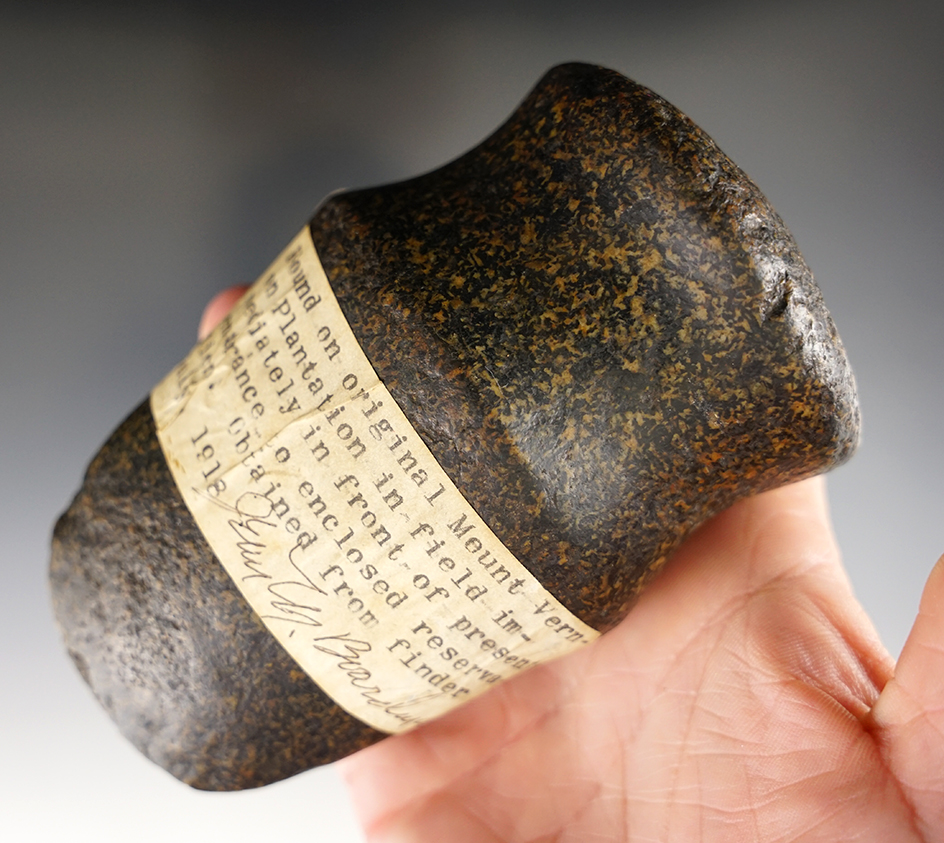 Found on original Mount Vern-
on Plantation in field im-
mediately in front of present
entrance to enclosed reserva
tion. Obtained from finder
1918